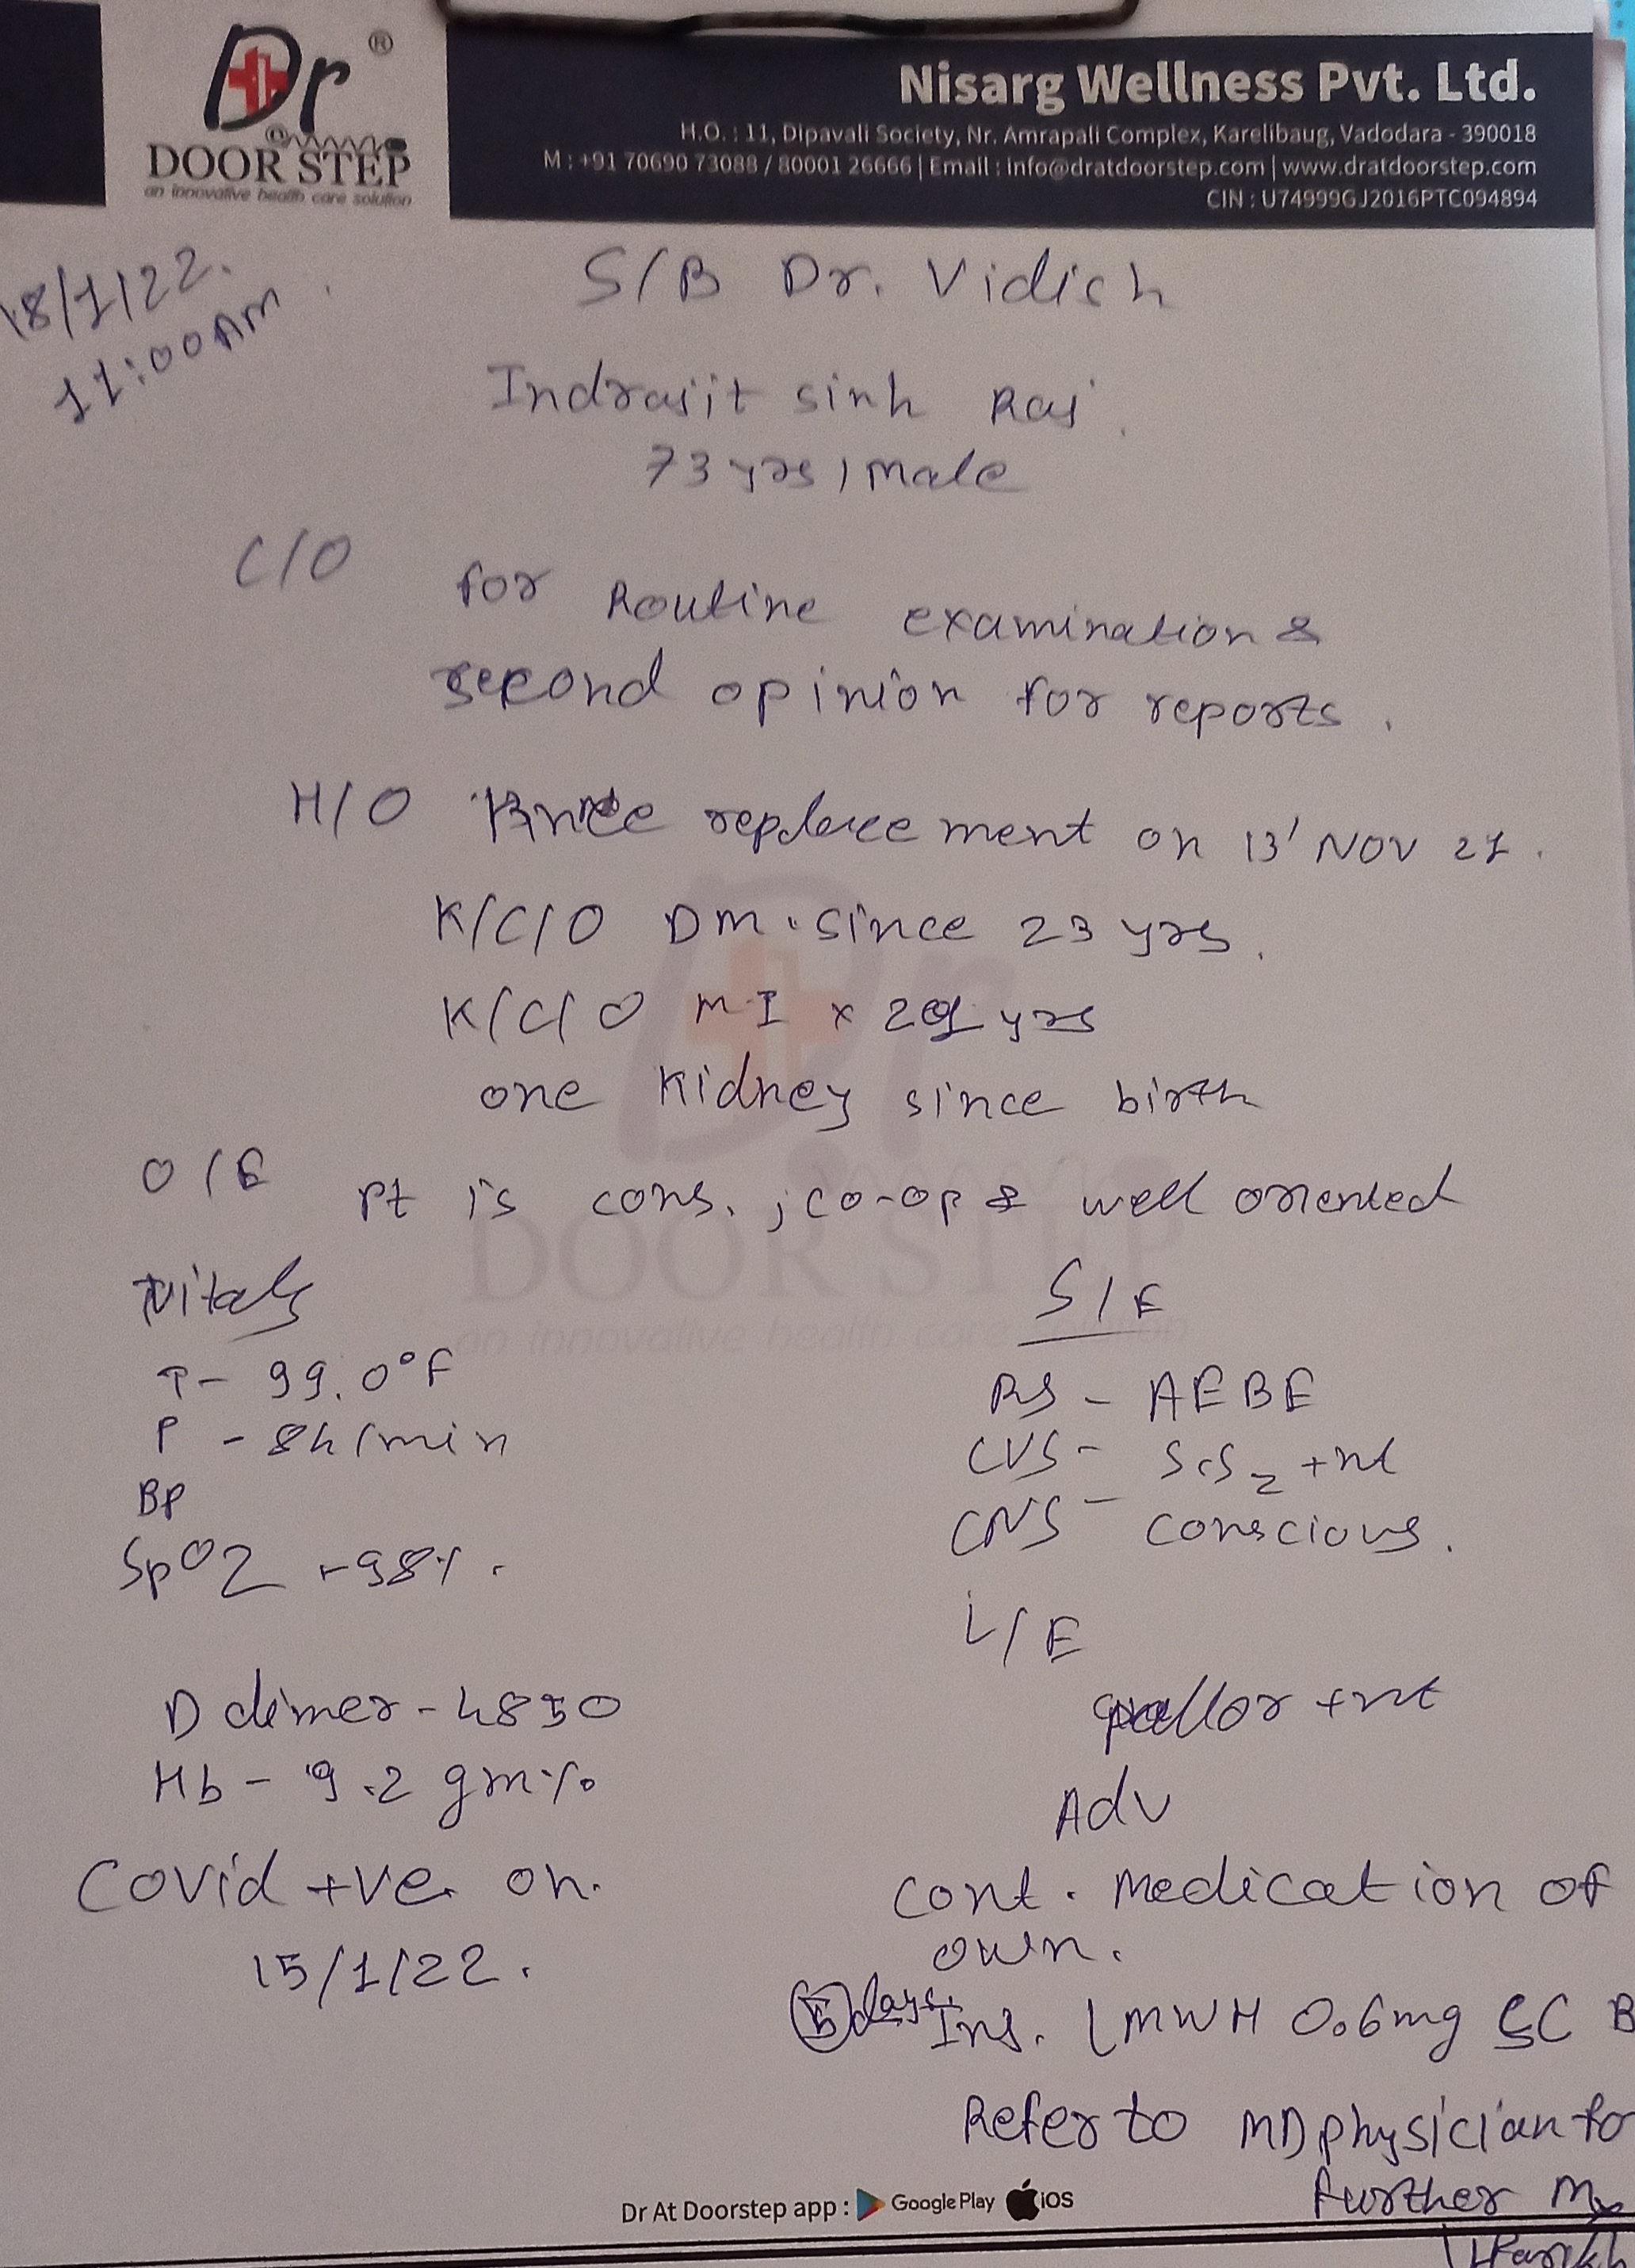 Dr ®
@
DOOR STEP
an innovative health care solution
Nisarg Wellness Pvt. Ltd.
H.O. : 11, Dipavali Society, Nr. Amrapali Complex, Karelibaug, Vadodara - 390018
M : +91 70690 73088 / 80001 26666 | Email : info@dratdoorstep.com | www.dratdoorstep.com
CIN : U74999GJ2016PTC094894
18/1/22.
11:00AM.
S/B Dr. Vidish
Indrajit sinh Raj.
73 yrs / male
C/O for Routine examination &
second opinion for reports.
H/O Knee replacement on 13' NOV 21.
K/C/O DM. since 23 yrs.
K/C/O M.I x yrs
one Kidney since birth
O/E pt is cons., co-op & well oriented
Vitals
T- 99.0°F
P - 84/min
BP
SpO2 - 98%.
S/E
RS - AEBE
CVS - S1S2 +nt
CNS - conscious.
L/E
pallor +nt
D dimer - 4850
Hb - 9.2 gm%
Covid +ve on.
15/1/22.
Adv
cont. medication of
own.
5 days Inj. LMWH 0.6mg SC B
Refer to MD physician fo
further Mx
Parikh
Dr At Doorstep app : Google Play iOS
Dr
DOOR STEP
an innovative health care solution